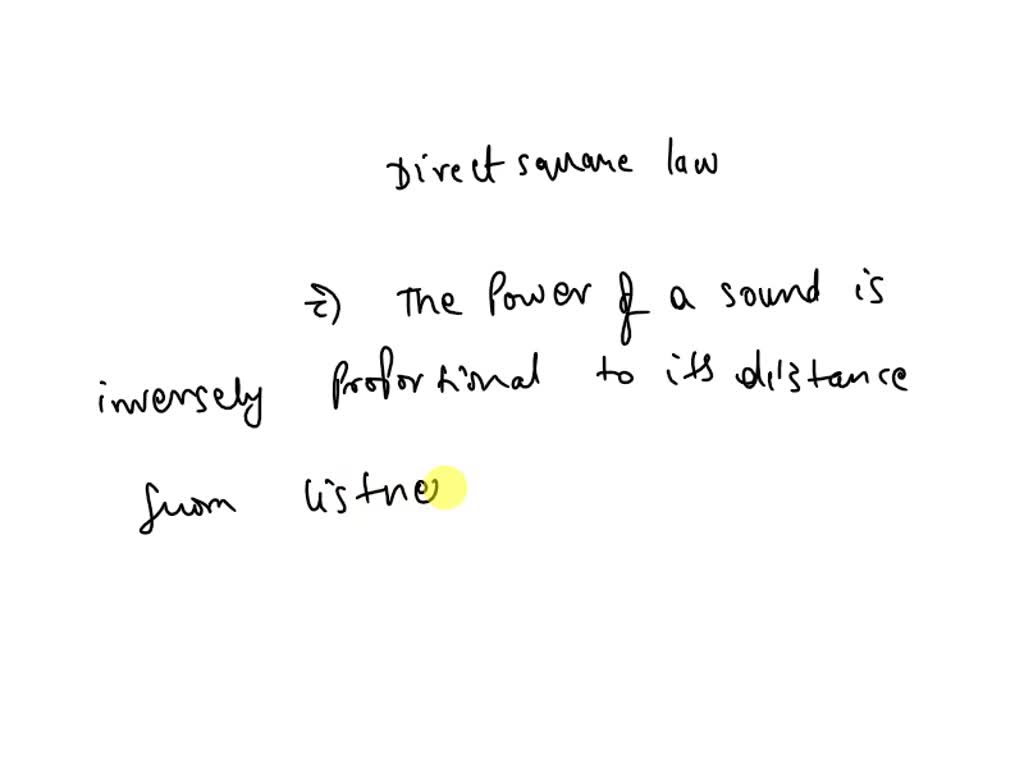 Direct square law
⇒) The Power of a sound is
inversely Proportional to its distance
from listne